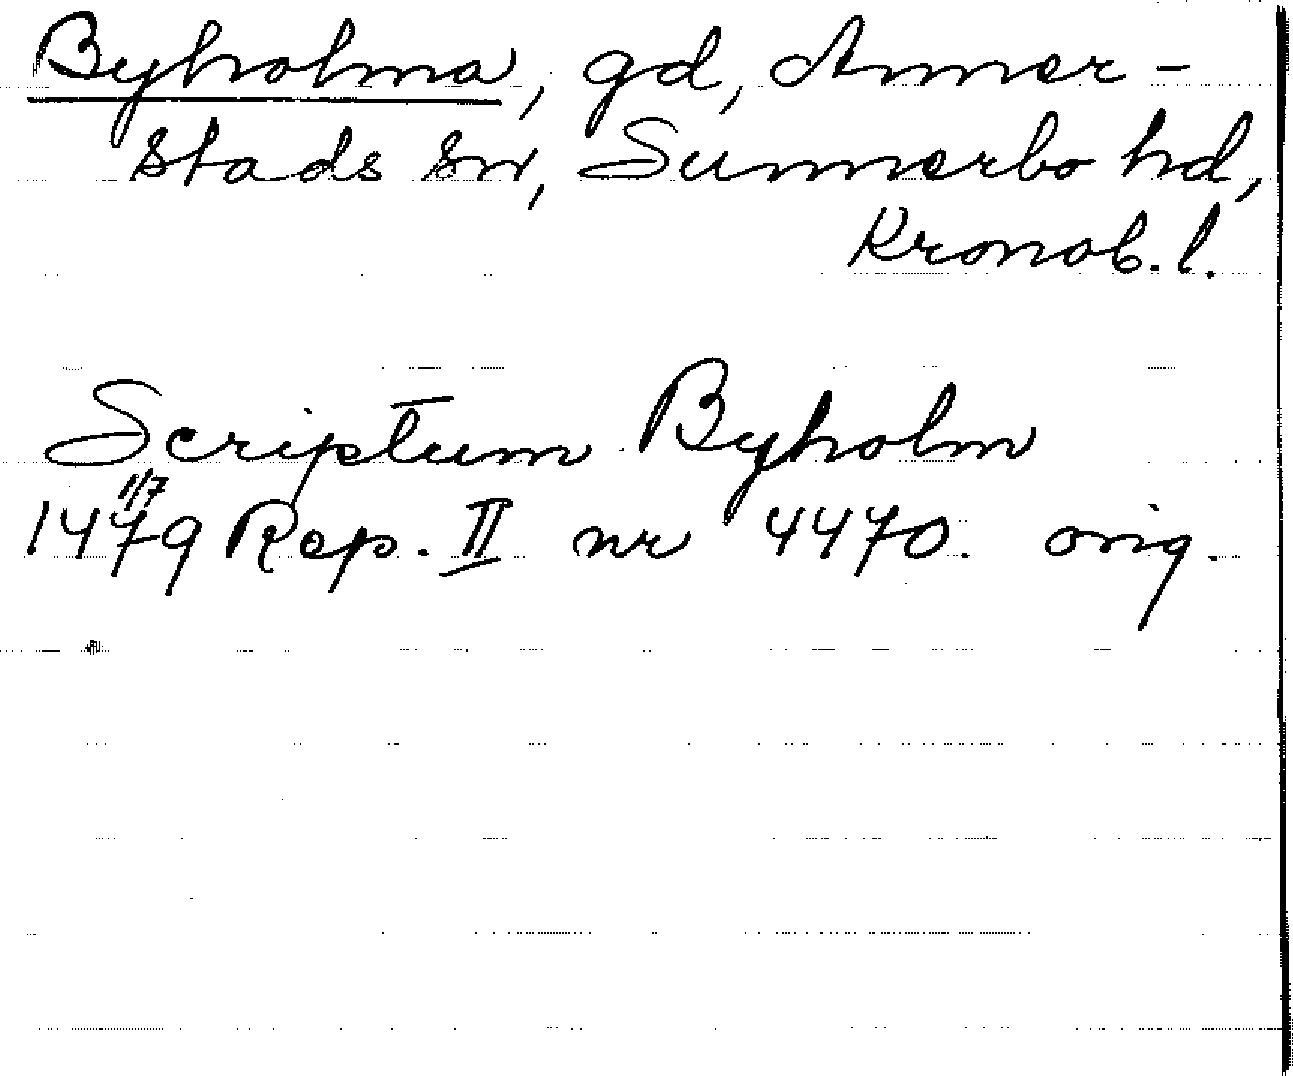 Byholma, gd, Anner-
stads sn, Sunnerbo hd,
Kronob. l.
Scriptum Byholm
1/7
1479 Rep. II nr 4470. orig.